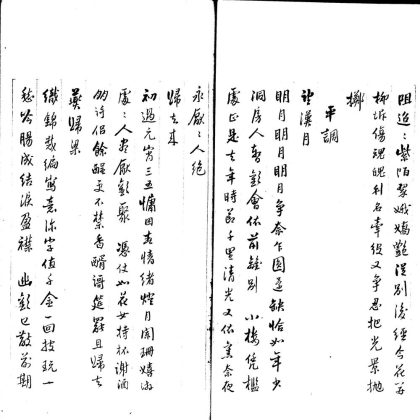 阻追〻紫陌翠娥嬌艷從別後經今花開
柳拆傷魂魄利名牽役又爭忍把光景拋
擲
平調
望漢月
明月明月明月爭奈乍圓還缺恰如年少
洞房人暫歡會依前離別 小樓凭檻
處正是去年時節千里清光又依舊奈夜
永厭〻人絕
歸去來
初過元宵三五慵困春情緒燈月闌珊嬉游
處〻人盡厭歡聚 憑仗如花女持杯謝酒
朋詩侶餘酲更不禁香醑歌筵罷且歸去
燕歸梁
織錦裁編寫意深字值千金一回披玩一
愁吟腸成結淚盈襟 幽歡已散前期